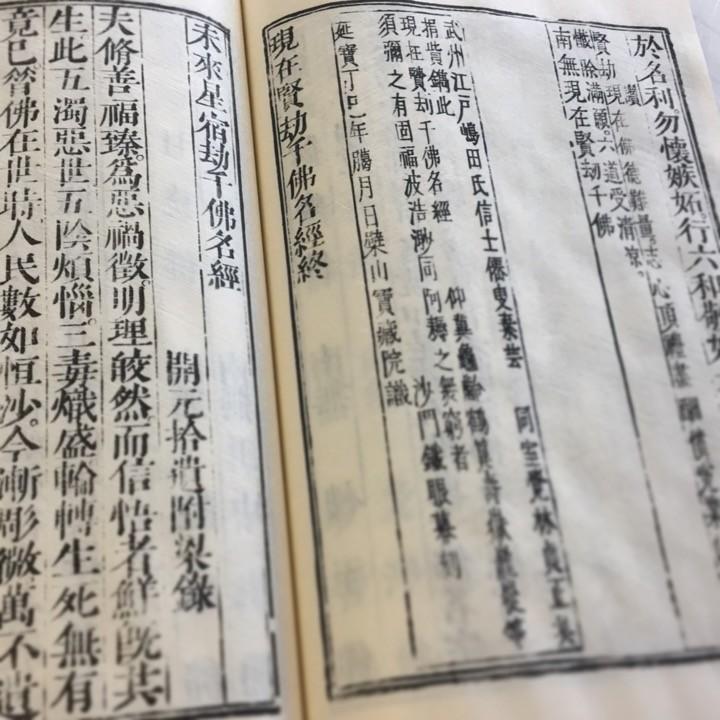 於名利勿懷嫉妬行六和敬
讚現在佛德難量志心頂禮
賢劫
懺除滿願六道受清涼
南無現在賢劫千佛
武州江戶嶋田氏信士
捐貲鐫此
現在賢劫千佛名經 仰冀龜齡鶴算
須彌之有固福波浩渺同阿耨之無窮者
沙門鐵眼募刻
延寶丁巳年臘月日檗山寶藏院識
現在賢劫千佛名經終
未來星宿劫千佛名經
開元拾遺附梁錄
夫脩善福臻爲惡禍徵明理皎然而信悟者鮮旣共
生此五濁惡世五陰煩惱三毒熾盛輪轉生死無有
竟已昔佛在世時人民數如恒沙今漸彫微萬不遺